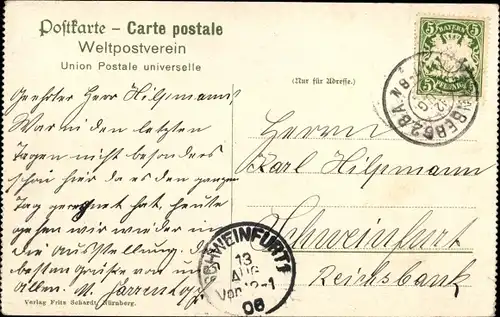 Postkarte – Carte postale
Weltpostverein
Union Postale universelle
(Nur für Adresse.)
BAYERN
5 5
5 PFENNIG 5
Geehrter Herr Hilpmann!
War in den letzten
Tagen nicht besonders
schön hier da es den ganzen
Tag geregnet hat, heute
gehen wir wieder in
die Ausstellung, d
besten Grüße von un
Allen.
Herrn
Karl Hilpmann
Schweinfurt
Reichsbank
SCHWEINFURT 1
13
AUG
06
Verlag Fritz Schardt, Nürnberg.